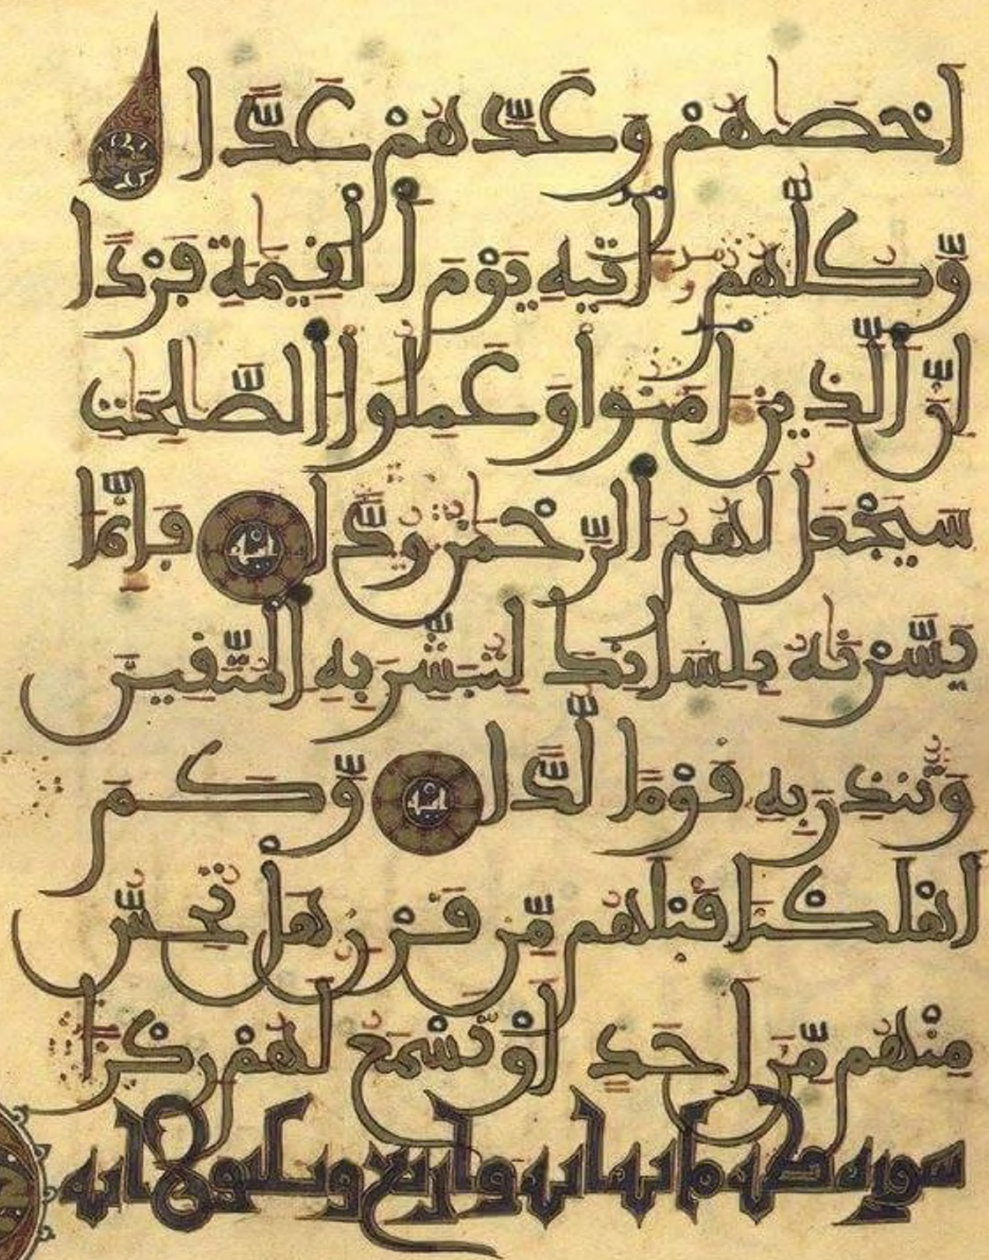 أَحْصَىٰهُمْ وَعَدَّهُمْ عَدًّا
وَكُلُّهُمْ ءَاتِيهِ يَوْمَ ٱلْقِيَٰمَةِ فَرْدًا
إِنَّ ٱلَّذِينَ ءَامَنُوا وَعَمِلُوا ٱلصَّٰلِحَٰتِ
سَيَجْعَلُ لَهُمُ ٱلرَّحْمَٰنُ وُدًّا فَإِنَّمَا
يَسَّرْنَٰهُ بِلِسَانِكَ لِتُبَشِّرَ بِهِ ٱلْمُتَّقِينَ
وَتُنْذِرَ بِهِ قَوْمًا لُدًّا وَكَمْ
أَهْلَكْنَا قَبْلَهُمْ مِّنْ قَرْنٍ هَلْ تُحِسُّ
مِنْهُمْ مِّنْ أَحَدٍ أَوْ تَسْمَعُ لَهُمْ رِكْزًا
سورة طه مائة اية واربع وثلثون اية